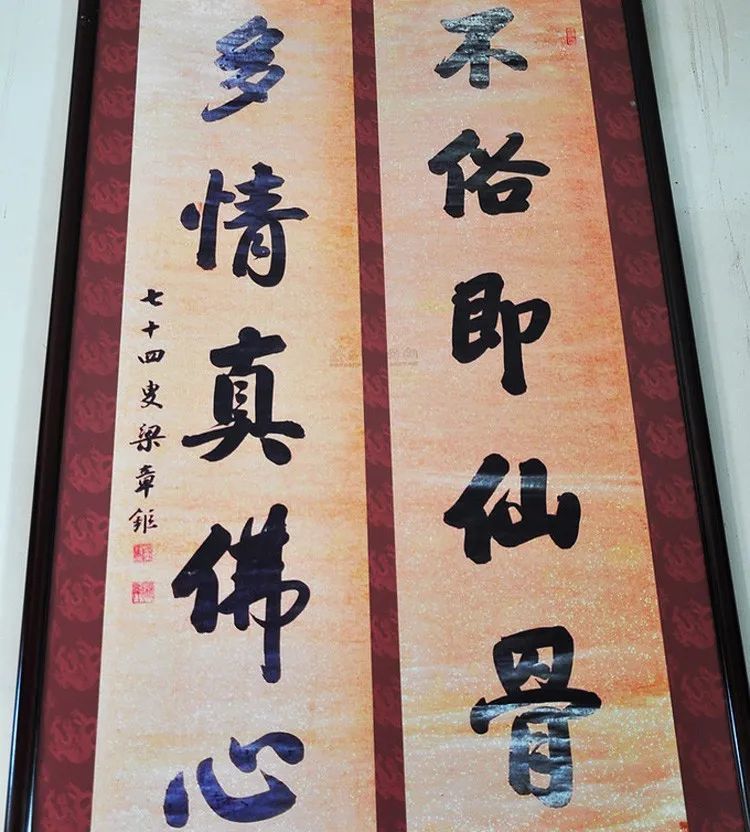 不俗即仙骨
多情真佛心
七十四叟梁章鉅